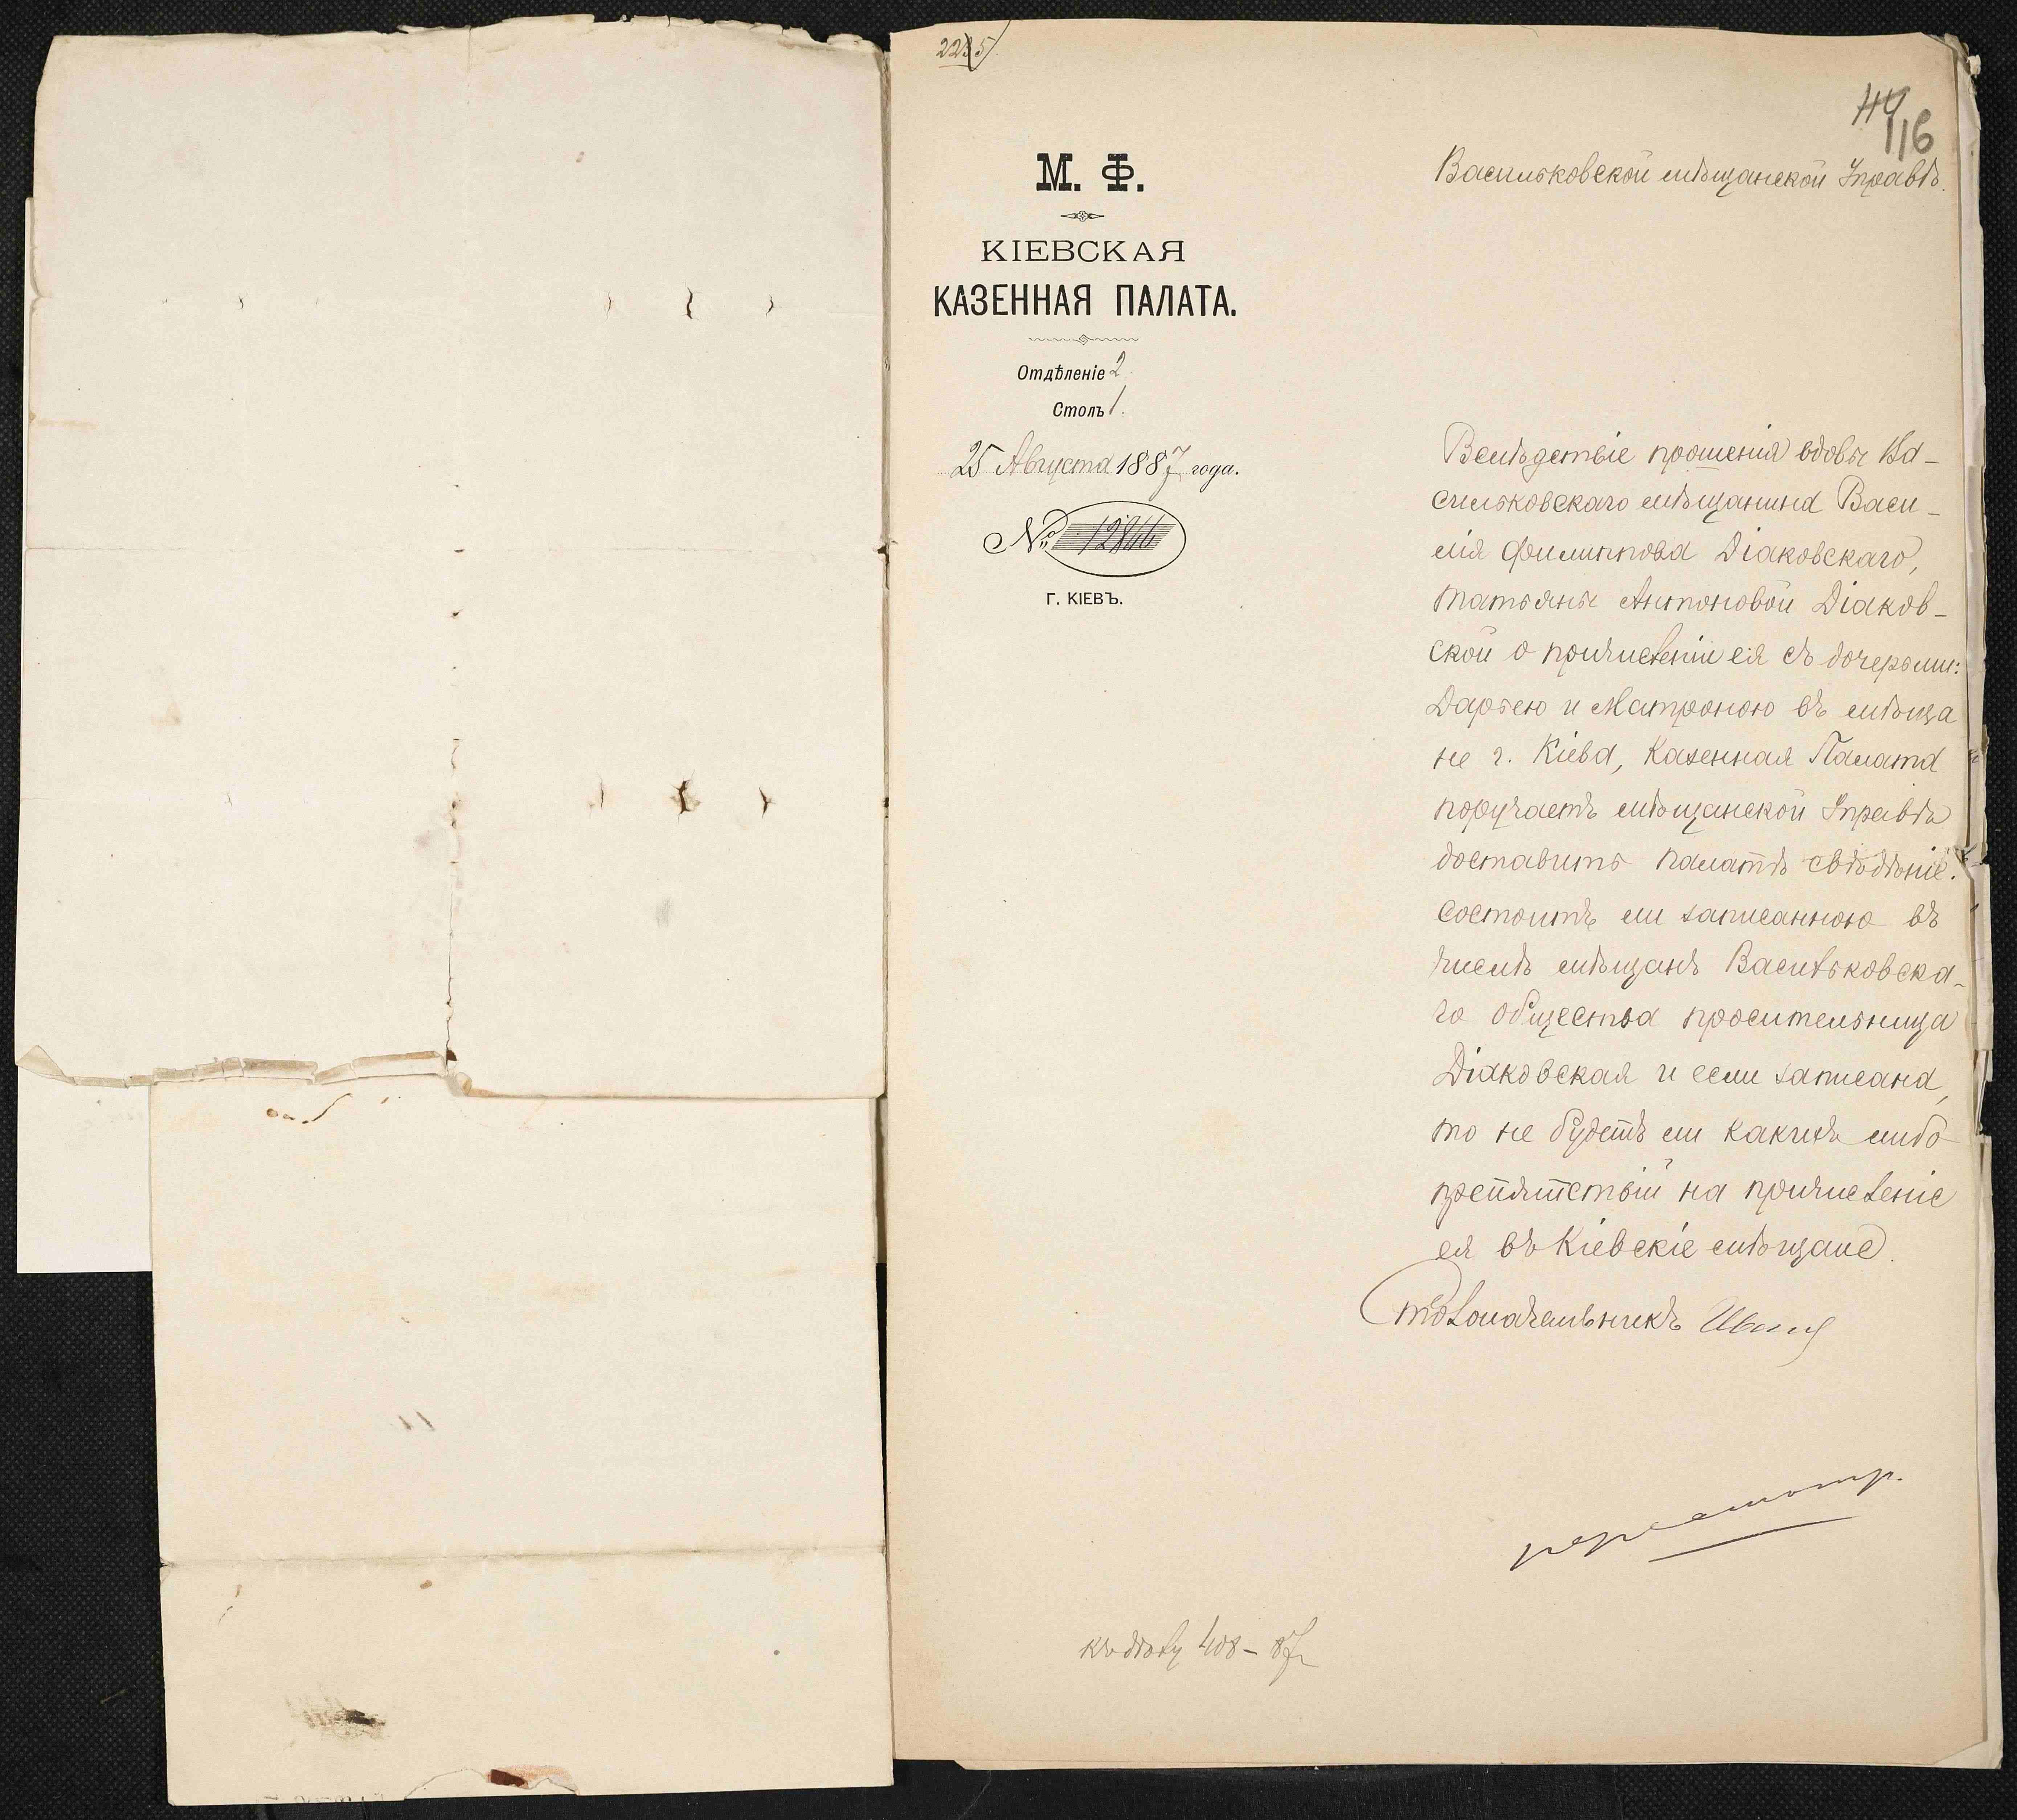 2235
114
116
М. Ф.
КІЕВСКАЯ
КАЗЕННАЯ ПАЛАТА.
Отдѣленіе 2
Столъ 1.
25 Августа 1887 года.
№ 12846
Г. КІЕВЪ.
Васильковской мѣщанской Управѣ.
Вслѣдствіе прошенія вдовы Ва-
сильковскаго мѣщанина Васи-
лія Филиппова Діаковскаго,
Татьяны Антоновой Діаков-
ской о причисленіи ея съ дочерьми:
Дарьею и Матроною въ мѣща
не г. Кіева, Казенная Палата
поручаетъ мѣщанской Управѣ
доставить палатѣ свѣдѣніе.
состоитъ ли записанною въ
числѣ мѣщанъ Васильковска-
го общества просительница
Діаковская и если записана,
то не будетъ ли какихъ либо
препятствій на причисленіе
ея въ Кіевскіе мѣщане.
Столоначальникъ
къ дѣлу 408-87